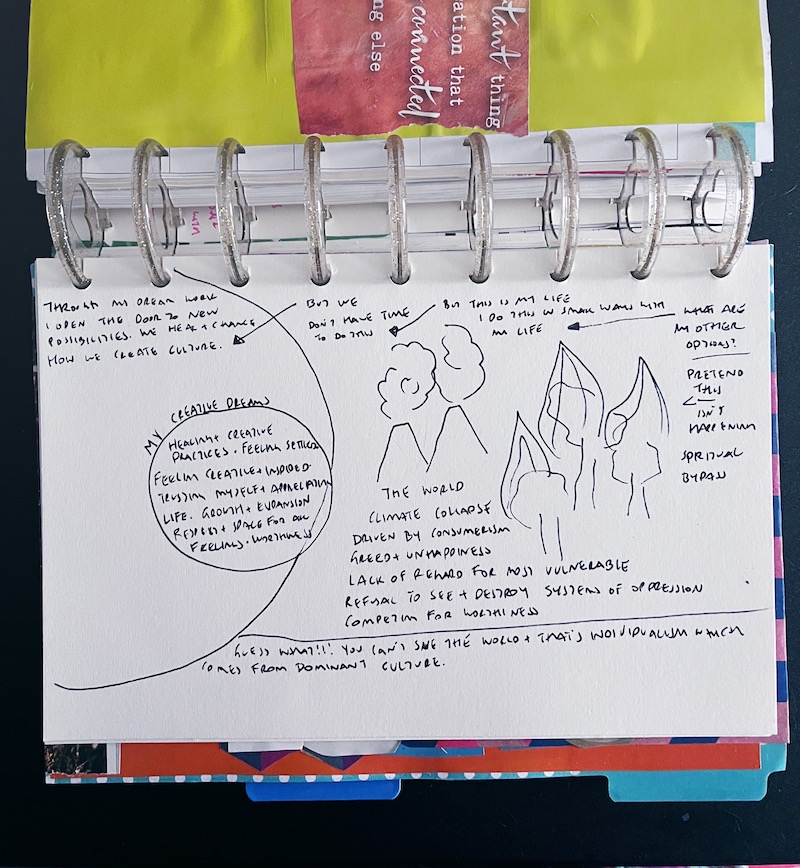 tant thing
ation that
connected
ng else
THROUGH MY DREAM WORK
I OPEN THE DOOR TO NEW
POSSIBILITIES. WE HEAL + CHANGE
HOW WE CREATE CULTURE.
BUT WE
DON'T HAVE TIME
TO DO THIS
BUT THIS IS MY LIFE
I DO THIS IN SMALL WAYS WITH
MY LIFE
WHAT ARE
MY OTHER
OPTIONS?
PRETEND
THIS
ISN'T
HAPPENING
SPIRITUAL
BYPASS
MY CREATIVE DREAMS
HEALING + CREATIVE
PRACTICES. FEELING SETTLED
FEELING CREATIVE + INSPIRED.
TRUSTING MYSELF + APPRECIATING
LIFE. GROWTH + EXPANSION
RESPECT + SPACE FOR ALL
FEELINGS. WORTHINESS
THE WORLD
CLIMATE COLLAPSE
DRIVEN BY CONSUMERISM
GREED + UNHAPPINESS
LACK OF REGARD FOR MOST VULNERABLE
REFUSAL TO SEE + DESTROY SYSTEMS OF OPPRESSION
COMPETING FOR WORTHINESS
GUESS WHAT!!! YOU CAN'T SAVE THE WORLD + THAT'S INDIVIDUALISM WHICH
COMES FROM DOMINANT CULTURE.